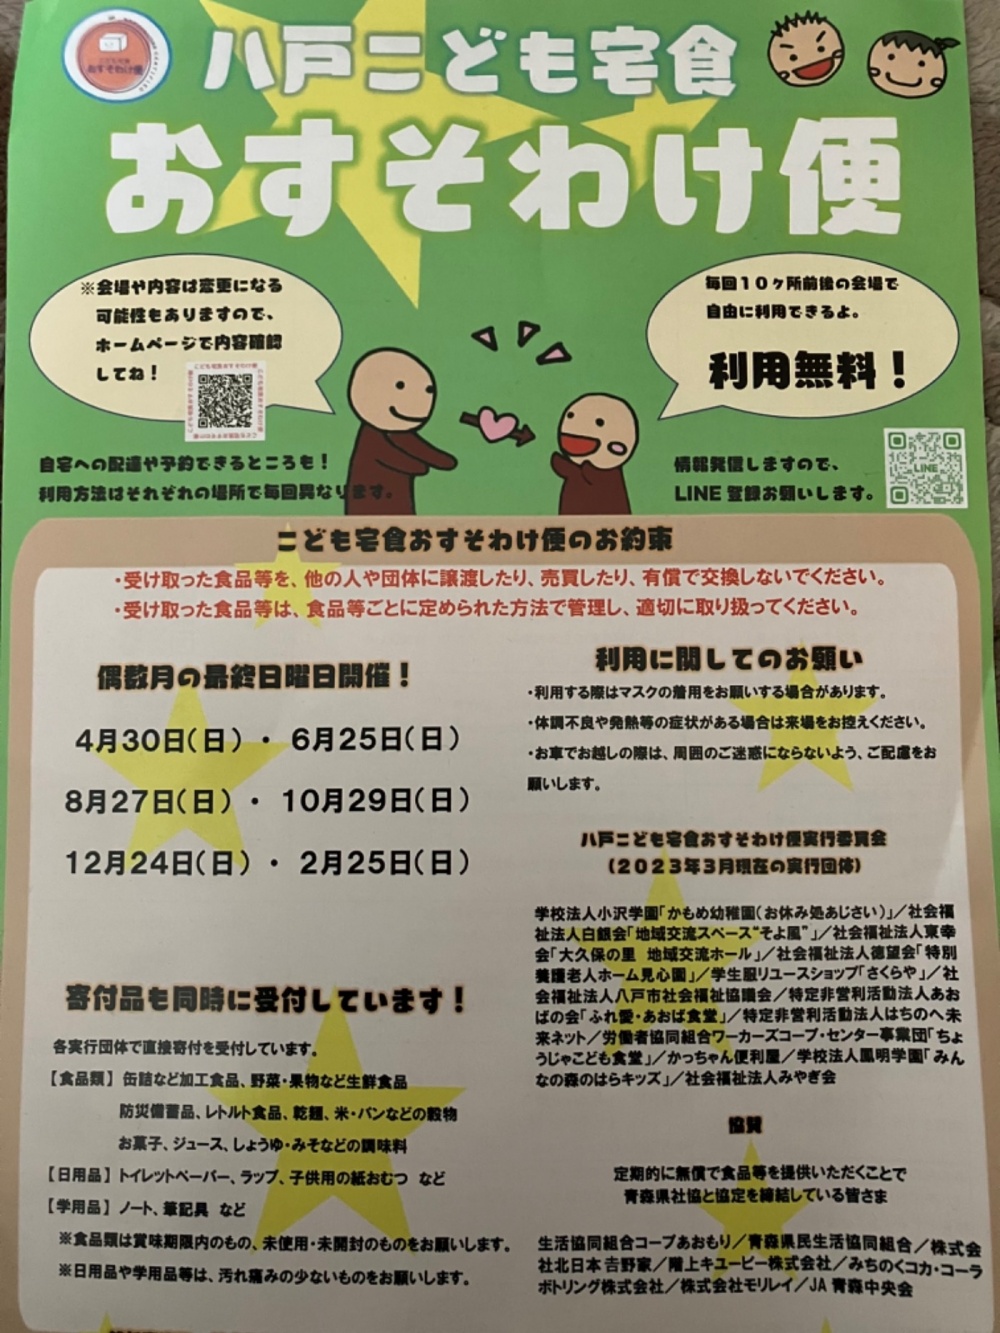 こども宅食
おすそわけ便
八戸こども宅食
おすそわけ便
※会場や内容は変更になる
可能性もありますので、
ホームページで内容確認
してね！
毎回１０ヶ所前後の会場で
自由に利用できるよ。
利用無料！
自宅への配達や予約できるところも！
利用方法はそれぞれの場所で毎回異なります。
情報発信しますので、
LINE登録お願いします。
LINE
こども宅食おすそわけ便のお約束
・受け取った食品等を、他の人や団体に譲渡したり、売買したり、有償で交換しないでください。
・受け取った食品等は、食品等ごとに定められた方法で管理し、適切に取り扱ってください。
偶数月の最終日曜日開催！
4月30日（日）・ 6月25日（日）
8月27日（日）・ 10月29日（日）
12月24日（日）・ 2月25日（日）
寄付品も同時に受付しています！
各実行団体で直接寄付を受付しています。
【食品類】 缶詰など加工食品、野菜・果物など生鮮食品
防災備蓄品、レトルト食品、乾麺、米・パンなどの穀物
お菓子、ジュース、しょうゆ・みそなどの調味料
【日用品】 トイレットペーパー、ラップ、子供用の紙おむつ など
【学用品】 ノート、筆記具 など
※食品類は賞味期限内のもの、未使用・未開封のものをお願いします。
※日用品や学用品等は、汚れ痛みの少ないものをお願いします。
利用に関してのお願い
・利用する際はマスクの着用をお願いする場合があります。
・体調不良や発熱等の症状がある場合は来場をお控えください。
・お車でお越しの際は、周囲のご迷惑にならないよう、ご配慮をお
願いします。
八戸こども宅食おすそわけ便実行委員会
（２０２３年３月現在の実行団体）
学校法人小沢学園「かもめ幼稚園（お休み処あじさい）」／社会福
祉法人白銀会「地域交流スペース“そよ風”」／社会福祉法人東幸
会「大久保の里 地域交流ホール」／社会福祉法人徳望会「特別
養護老人ホーム見心園」／学生服リユースショップ「さくらや」／社
会福祉法人八戸市社会福祉協議会／特定非営利活動法人あお
ばの会「ふれ愛・あおば食堂」／特定非営利活動法人はちのへ未
来ネット／労働者協同組合ワーカーズコープ・センター事業団「ちょ
うじゃこども食堂」／かっちゃん便利屋／学校法人鳳明学園「みん
なの森のはらキッズ」／社会福祉法人みやぎ会
協賛
定期的に無償で食品等を提供いただくことで
青森県社協と協定を締結している皆さま
生活協同組合コープあおもり／青森県民生活協同組合／株式会
社北日本吉野家／階上キユーピー株式会社／みちのくコカ・コーラ
ボトリング株式会社／株式会社モリレイ／JA 青森中央会